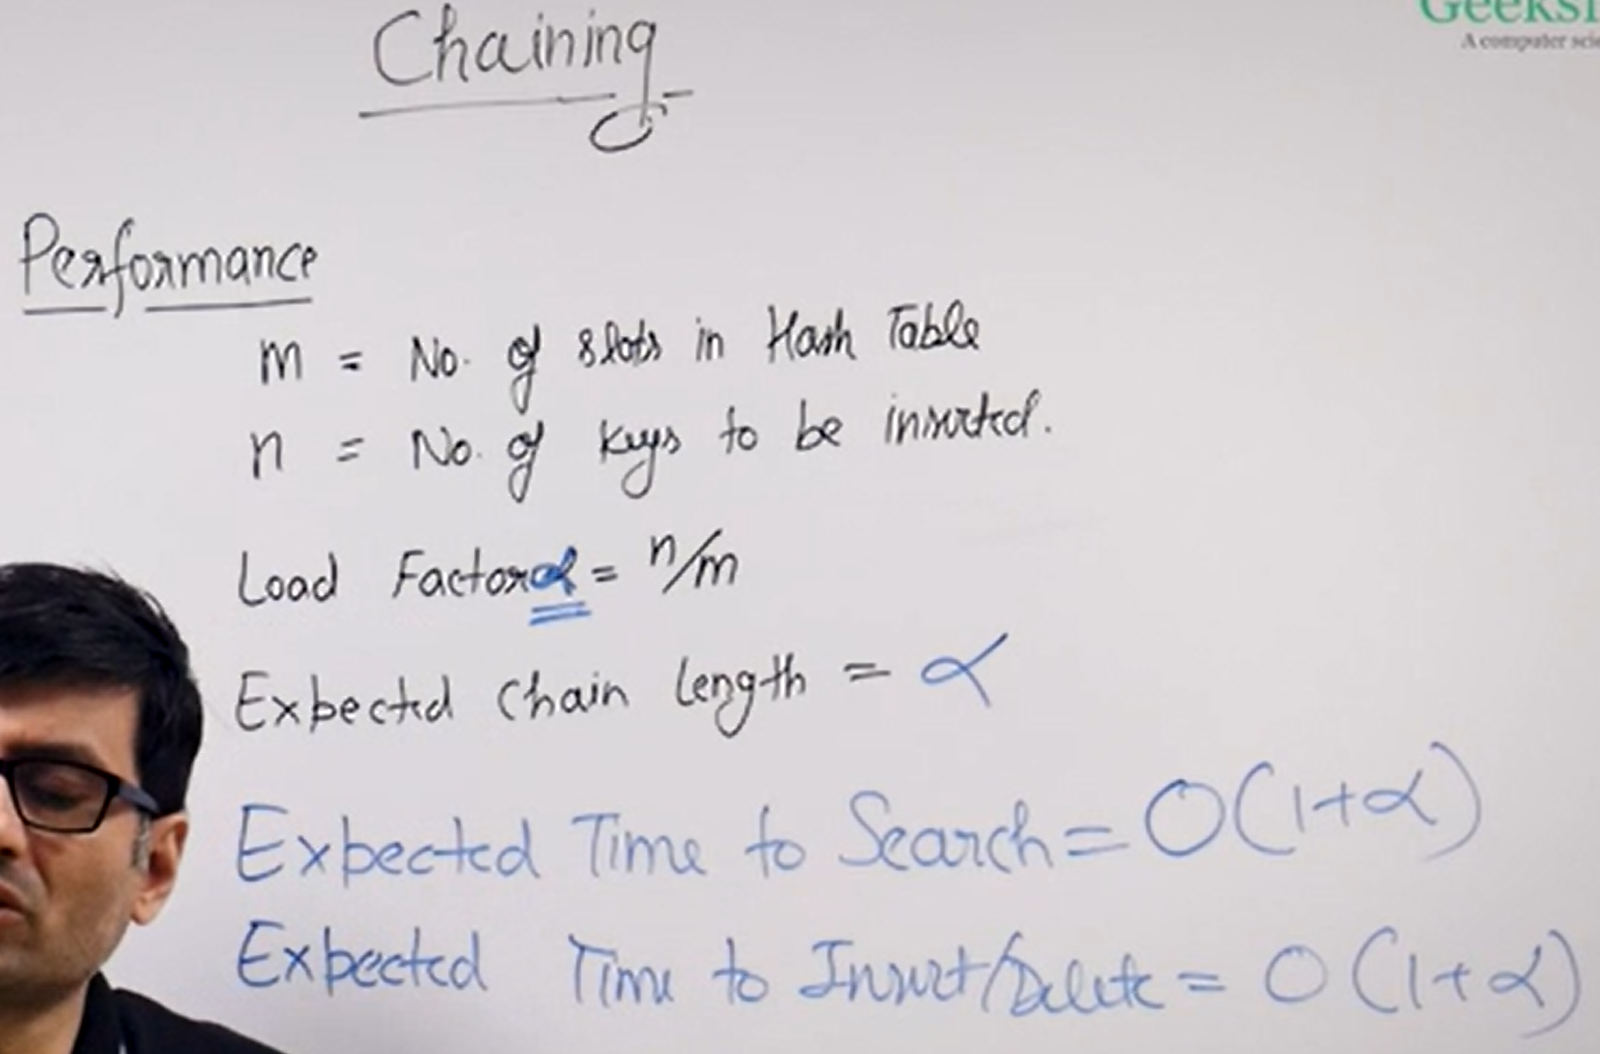 Geeksf
A computer scie
Chaining
Performance
m = No. of slots in Hash Table
n = No. of keys to be inserted.
Load Factor α = n/m
Expected Chain Length = α
Expected Time to Search = O(1+α)
Expected Time to Insert/Delete = O(1+α)